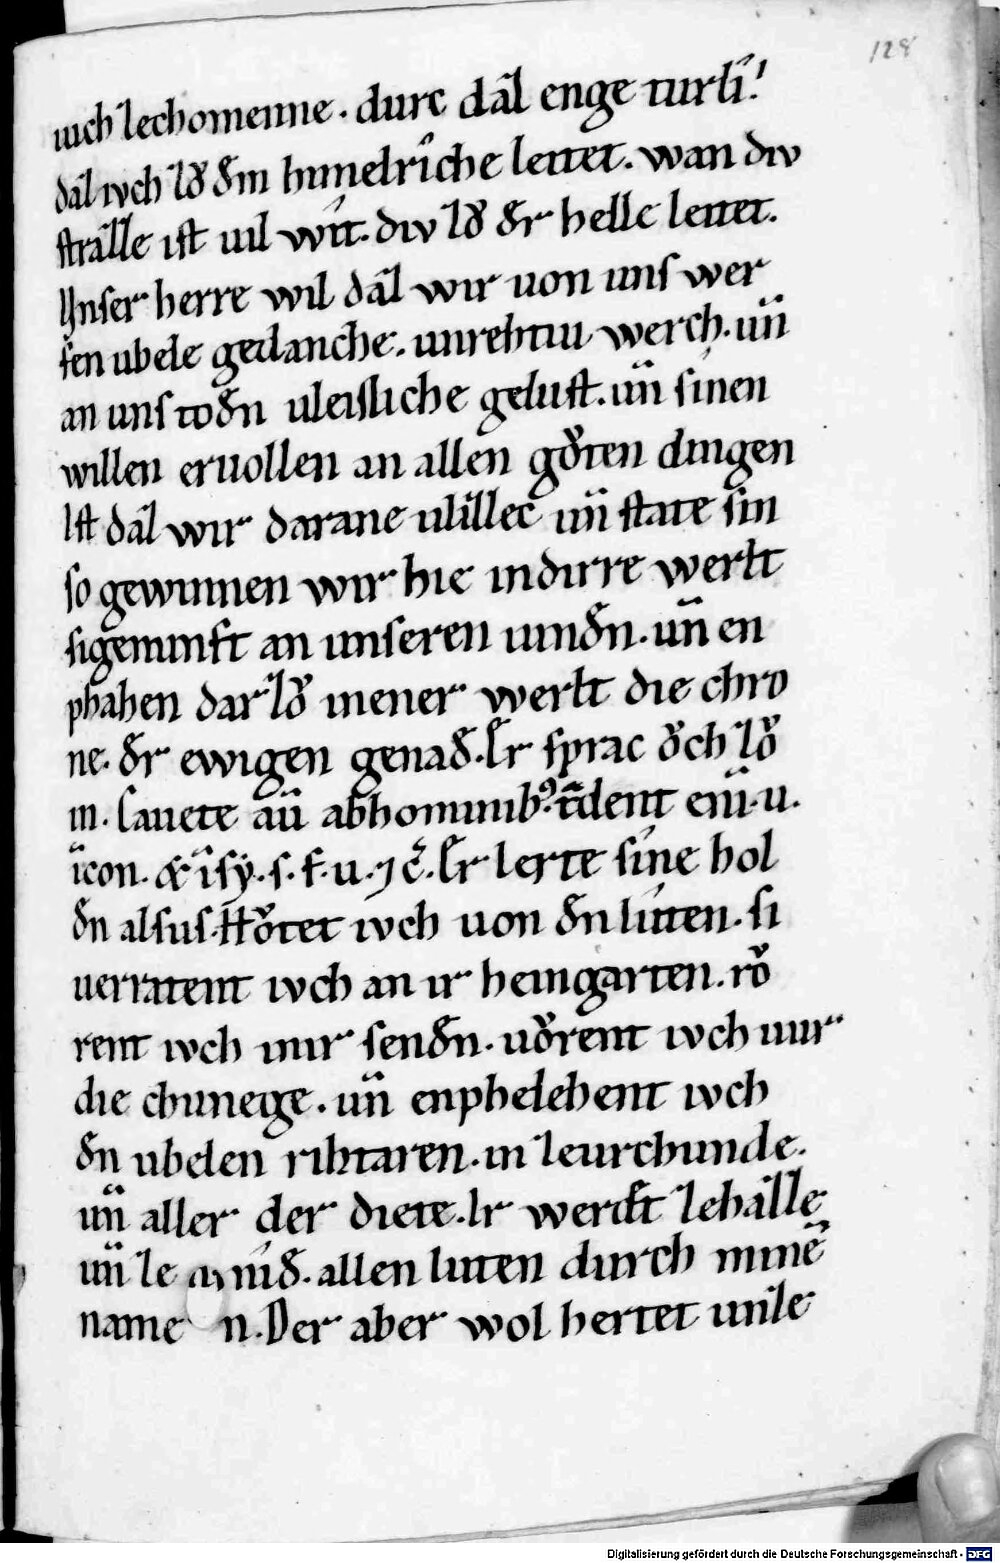 128
iuch zechomenne. durc daz enge turli!
daz ivch zo᷎ dem himelrîche leitet. wan div
strazze ist uil wit. div zo᷎ der helle leitet.
Unser herre wil daz wir uon uns wer
fen ubele gedanche. unrehtiu werch. un̄
an uns toden uleisliche gelust. un̄ sinen
willen eruollen an allen go᷎ten dingen
Ist daz wir darane ulizzec un̄ state sin
so gewinnen wir hie indirre werlt
sigenunft an unseren uinden. un̄ en
phahen dar zo᷎ iener werlt die chro
ne. der ewigen genade. Er sprac o᷎ch zo᷎
in. Cauete aū abhominib⁹. t͛dent enī. u.
īcon. & ī sẏ. s. f. u. ⁊ c̄. Er lerte sine hol
den alsus. Ho᷎tet ivch uon den lûten. si
uerratent ivch an ir heingarten. ro᷎
rent ivch uur senden. uo᷎rent ivch uur
die chunege. un̄ enphelehent ivch
den ubelen rihtaren. in zeurchunde.
un̄ aller der diete. Ir werdt zehazze
un̄ ze nide. allen luten durch minē
name n. Der aber wol hertet unze
Digitalisierung gefördert durch die Deutsche Forschungsgemeinschaft - DFG